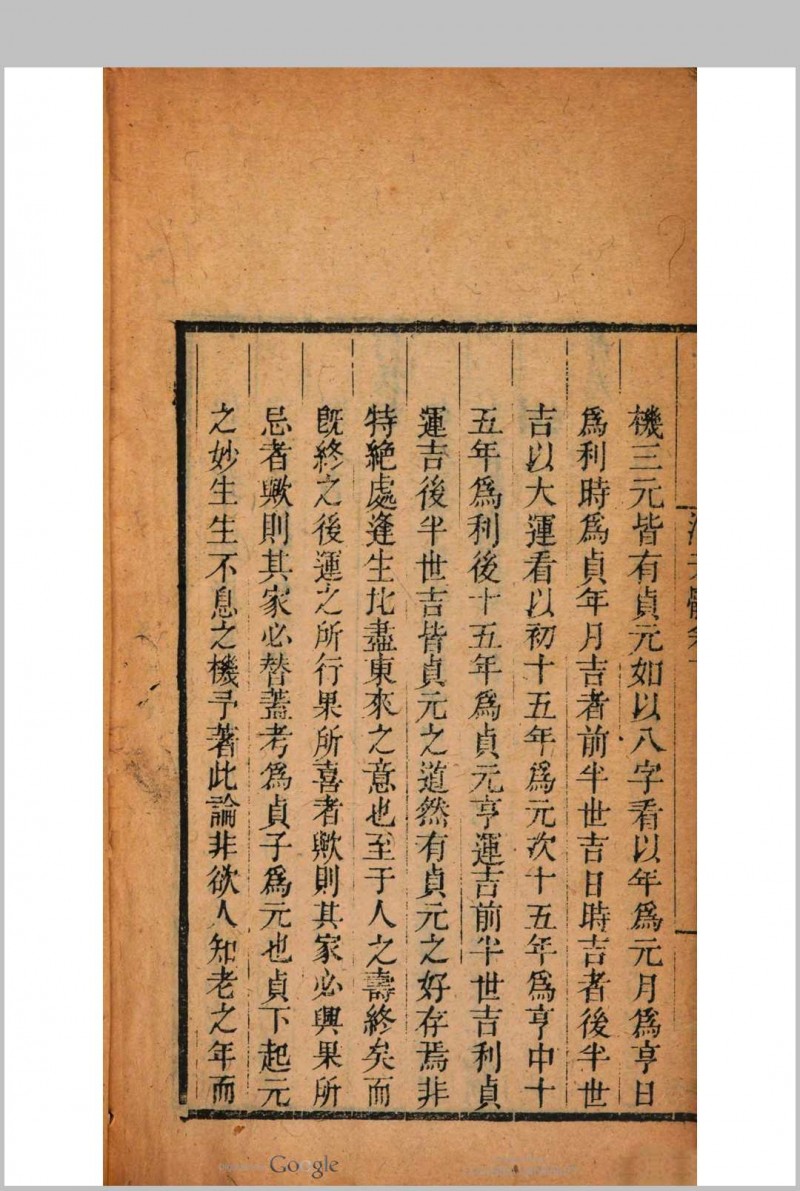 機三元皆有貞元如以八字看以年爲元月爲亨日
爲利時爲貞年月吉者前半世吉日時吉者後半世
吉以大運看以初十五年爲元次十五年爲亨中十
五年爲利後十五年爲貞元亨運吉前半世吉利貞
運吉後半世吉皆貞元之道然有貞元之妙存焉非
特絶處逢生北盡東來之意也至于人之壽終矣而
旣終之後運之所行果所喜者歟則其家必興果所
忌者歟則其家必替蓋考爲貞子爲元也貞下起元
之妙生生不息之機予著此論非欲人知老之年而
Google